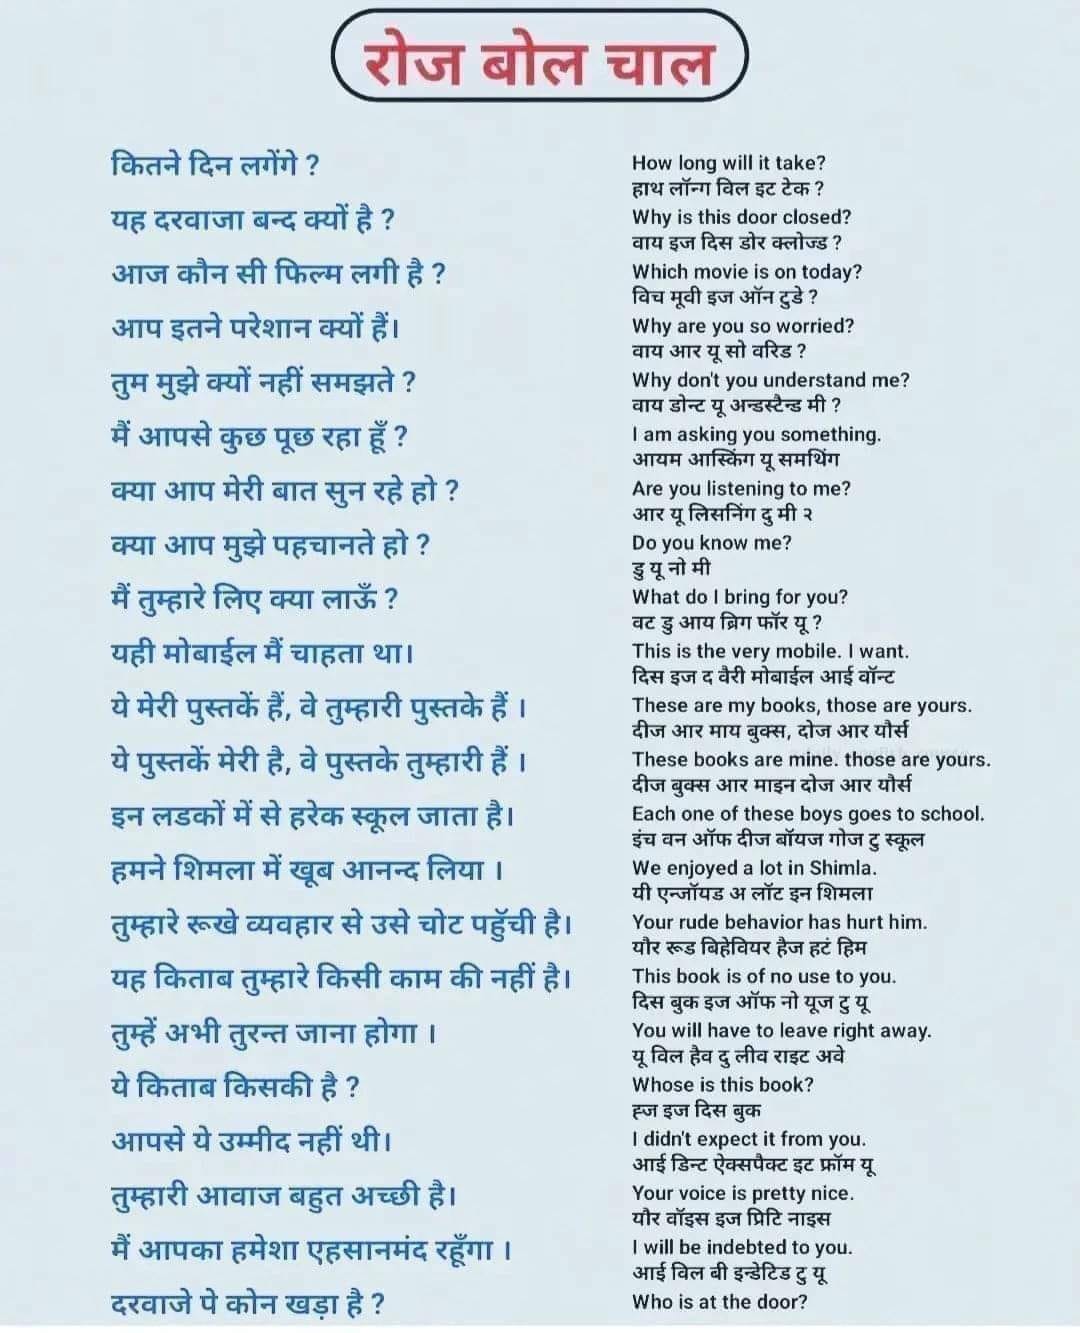 रोज बोल चाल
कितने दिन लगेंगे ?
How long will it take?
हाथ लॉन्ग विल इट टेक ?
यह दरवाजा बन्द क्यों है ?
Why is this door closed?
वाय इज दिस डोर क्लोज्ड ?
आज कौन सी फिल्म लगी है ?
Which movie is on today?
विच मूवी इज ऑन टुडे ?
आप इतने परेशान क्यों हैं।
Why are you so worried?
वाय आर यू सो वरिड ?
तुम मुझे क्यों नहीं समझते ?
Why don't you understand me?
वाय डोन्ट यू अन्डस्टैन्ड मी ?
मैं आपसे कुछ पूछ रहा हूँ ?
I am asking you something.
आयम आस्किंग यू समथिंग
क्या आप मेरी बात सुन रहे हो ?
Are you listening to me?
आर यू लिसनिंग दु मी २
क्या आप मुझे पहचानते हो ?
Do you know me?
डु यू नो मी
मैं तुम्हारे लिए क्या लाऊँ ?
What do I bring for you?
वट डु आय ब्रिग फॉर यू ?
यही मोबाईल मैं चाहता था।
This is the very mobile. I want.
दिस इज द वैरी मोबाईल आई वॉन्ट
ये मेरी पुस्तकें हैं, वे तुम्हारी पुस्तके हैं ।
These are my books, those are yours.
दीज आर माय बुक्स, दोज आर यौर्स
ये पुस्तकें मेरी है, वे पुस्तके तुम्हारी हैं ।
These books are mine. those are yours.
दीज बुक्स आर माइन दोज आर यौर्स
इन लडकों में से हरेक स्कूल जाता है।
Each one of these boys goes to school.
इंच वन ऑफ दीज बॉयज गोज टु स्कूल
हमने शिमला में खूब आनन्द लिया ।
We enjoyed a lot in Shimla.
यी एन्जॉयड अ लॉट इन शिमला
तुम्हारे रूखे व्यवहार से उसे चोट पहुँची है।
Your rude behavior has hurt him.
यौर रूड बिहेवियर हैज हटं हिम
यह किताब तुम्हारे किसी काम की नहीं है।
This book is of no use to you.
दिस बुक इज ऑफ नो यूज टु यू
तुम्हें अभी तुरन्त जाना होगा ।
You will have to leave right away.
यू विल हैव दु लीव राइट अवे
ये किताब किसकी है ?
Whose is this book?
ह्ज इज दिस बुक
आपसे ये उम्मीद नहीं थी।
I didn't expect it from you.
आई डिन्ट ऐक्सपैक्ट इट फ्रॉम यू
तुम्हारी आवाज बहुत अच्छी है।
Your voice is pretty nice.
यौर वॉइस इज प्रिटि नाइस
मैं आपका हमेशा एहसानमंद रहूँगा ।
I will be indebted to you.
आई विल बी इन्डेटिड टु यू
दरवाजे पे कोन खड़ा है ?
Who is at the door?